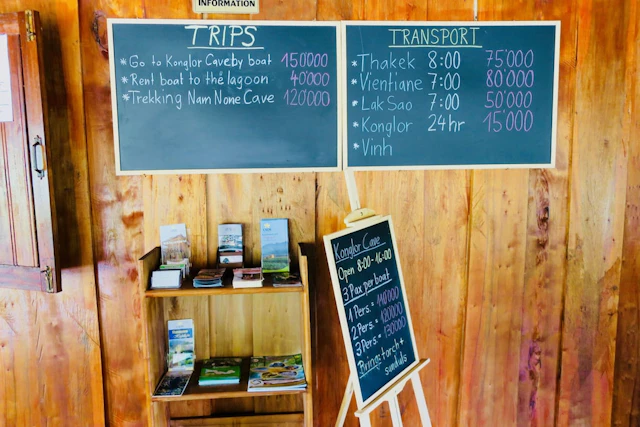 INFORMATION
TRIPS
* Go to Konglor Cave by boat 150'000
* Rent boat to the lagoon 40'000
* Trekking Nam None Cave 120'000
TRANSPORT
* Thakek 8:00 75'000
* Vientiane 7:00 80'000
* Lak Sao 7:00 50'000
* Konglor 24hr 15'000
* Vinh
Konglor Cave
Open 8:00-16:00
3 Pax per boat
1 Pers.= 110'000
2 Pers.= 120'000
3 Pers.= 130'000
Bring: torch +
sandals